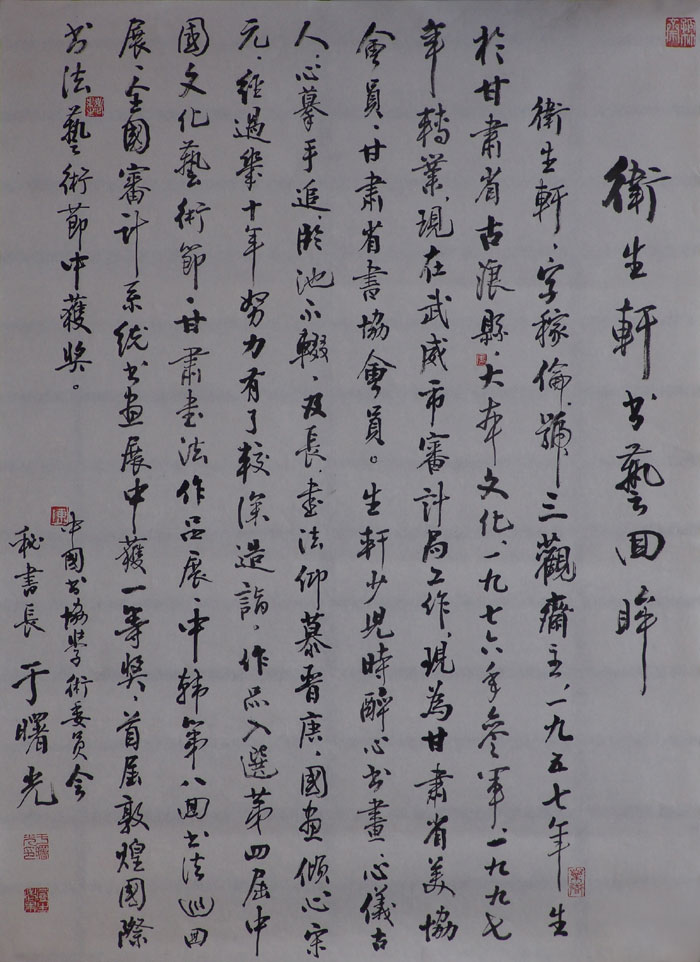 衛生軒书藝回眸
衛生軒、字稼倫、號三觀齋主、一九五七年生
於甘肅省古浪縣、大本文化、一九七六年參军、一九九七
年轉業、現在武威市審計局工作、現為甘肅省美協
會員、甘肅省書協會員。生軒少児時醉心书畫、心儀古
人、心摹手追、臨池不輟、及長、書法仰慕晋唐、國畫傾心宋
元、经過幾十年努力有了較深造詣、作品入選第四屆中
國文化藝術節、甘肅書法作品展、中韩第八回书法巡回
展、全國審計系统书画展中獲一等奖、首届敦煌國際
书法藝術節中獲奖。
中國书協學術委員会
秘書長 于曙光